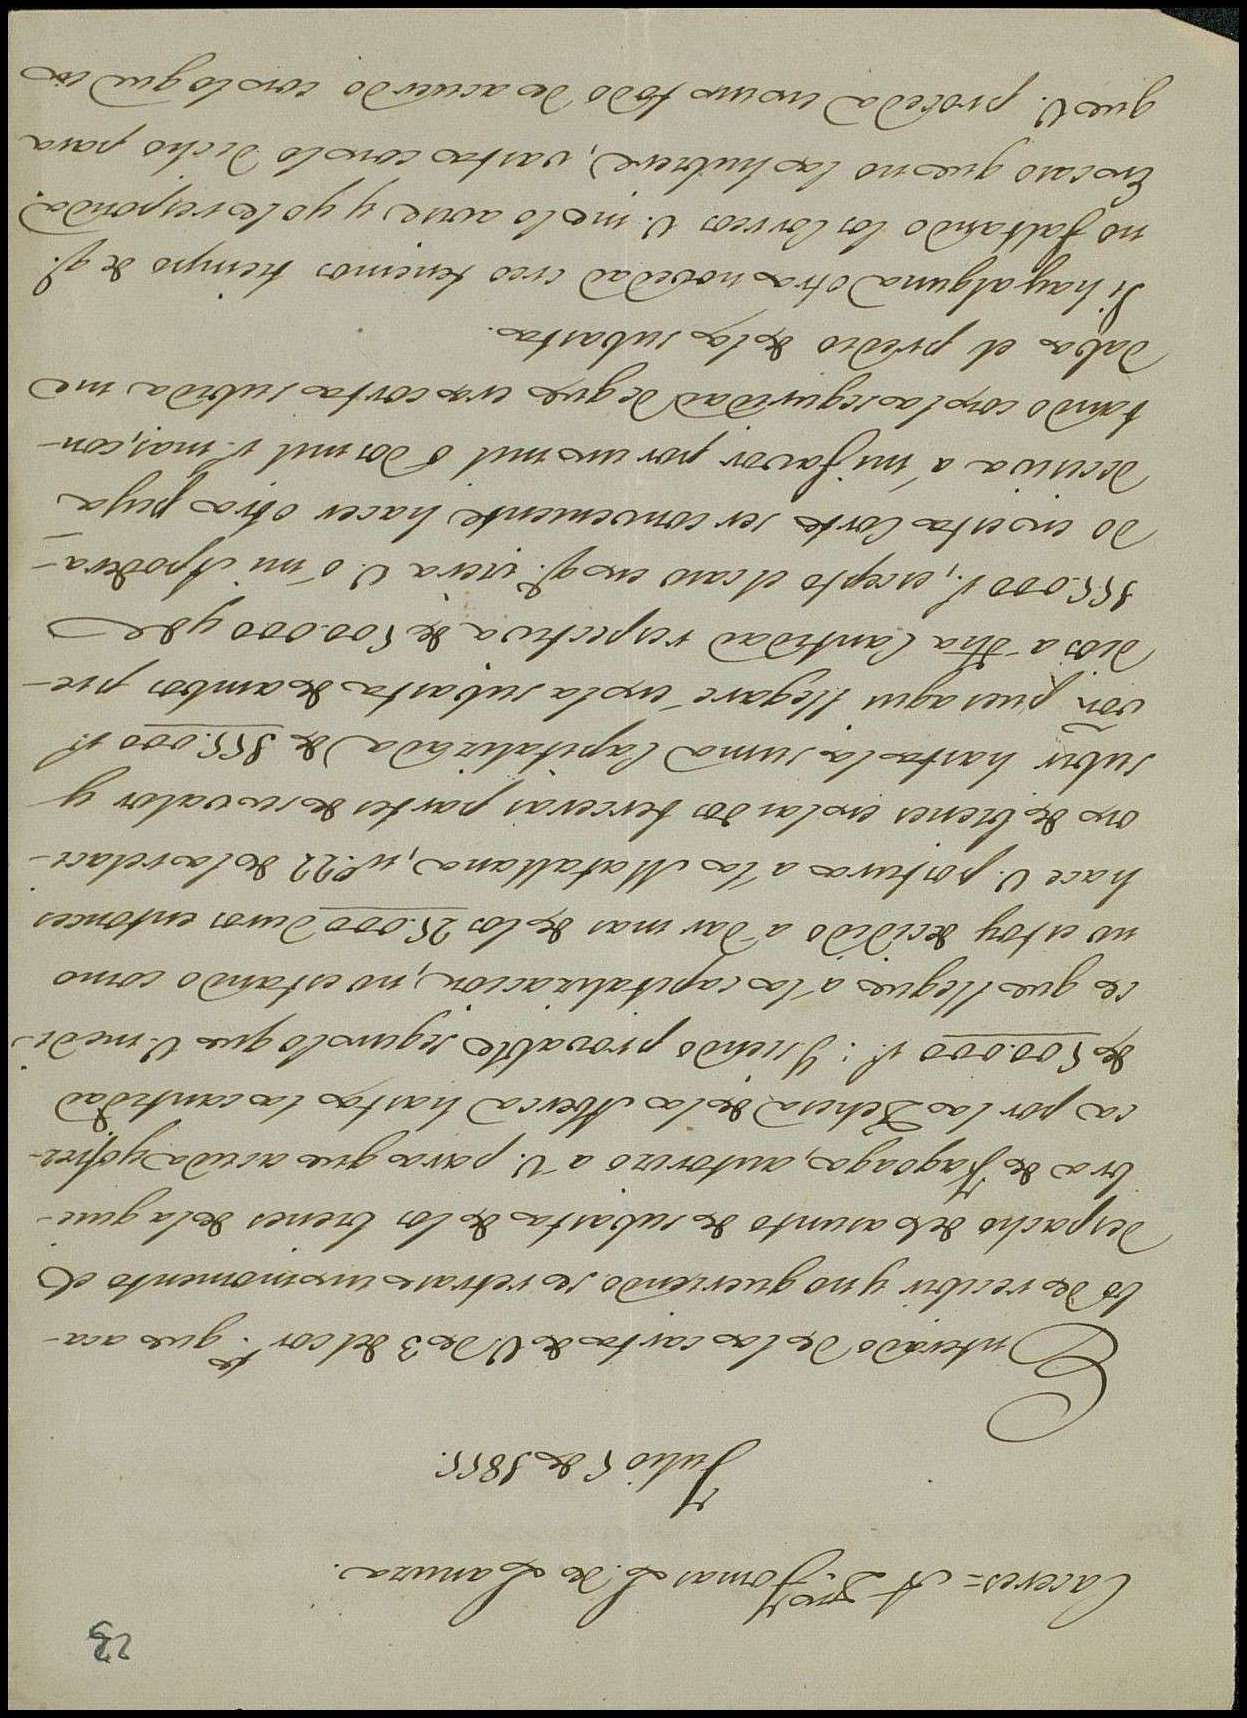 23
Caceres = A D. Tomas L. de Lanuza.
Julio 5 de 1855.
Enterado de la carta de V. de 3 del corte. que aca-
bo de recibir y no queriendo se retrase un momento el
despacho del asunto de subasta de los bienes de la quie-
bra de Fagoaga, autorizo a V. para que acuda y ofrez-
ca por la Dehesa de la Alverca hasta la cantidad
de 500.000 r.s: Y siendo provable segun lo que V. me di-
ce que llegue a la capitalizacion, no estando como
no estoy decidido a dar mas de los 25.000 duros entonces
hace V. postura a la Matallana, nº. 22 de la relaci-
on de bienes en las dos terceras partes de su valor y
subir hasta la suma Capitalizada de 355.000 r.s
von, pues aqui llegaré en la subasta de ambos pre-
dios a dha Cantidad respectiva de 500.000 y de
355.000 r.s, escepto el caso en q.e viera V. o mi Apodera-
do en esta Corte ser conveniente hacer otra puja
decisiva a mi favor por un mil o dos mil r.s mas, con-
tando con la seguridad de que una corta subida me
daba el predio de la subasta.
Si hay alguna otra novedad creo tenemos tiempo de q.e
no faltando los Correos V. me lo avise y yo le responda.
En caso que no la hubiere, vasta con lo dicho para
que V. proceda en un todo de acuerdo con lo que in